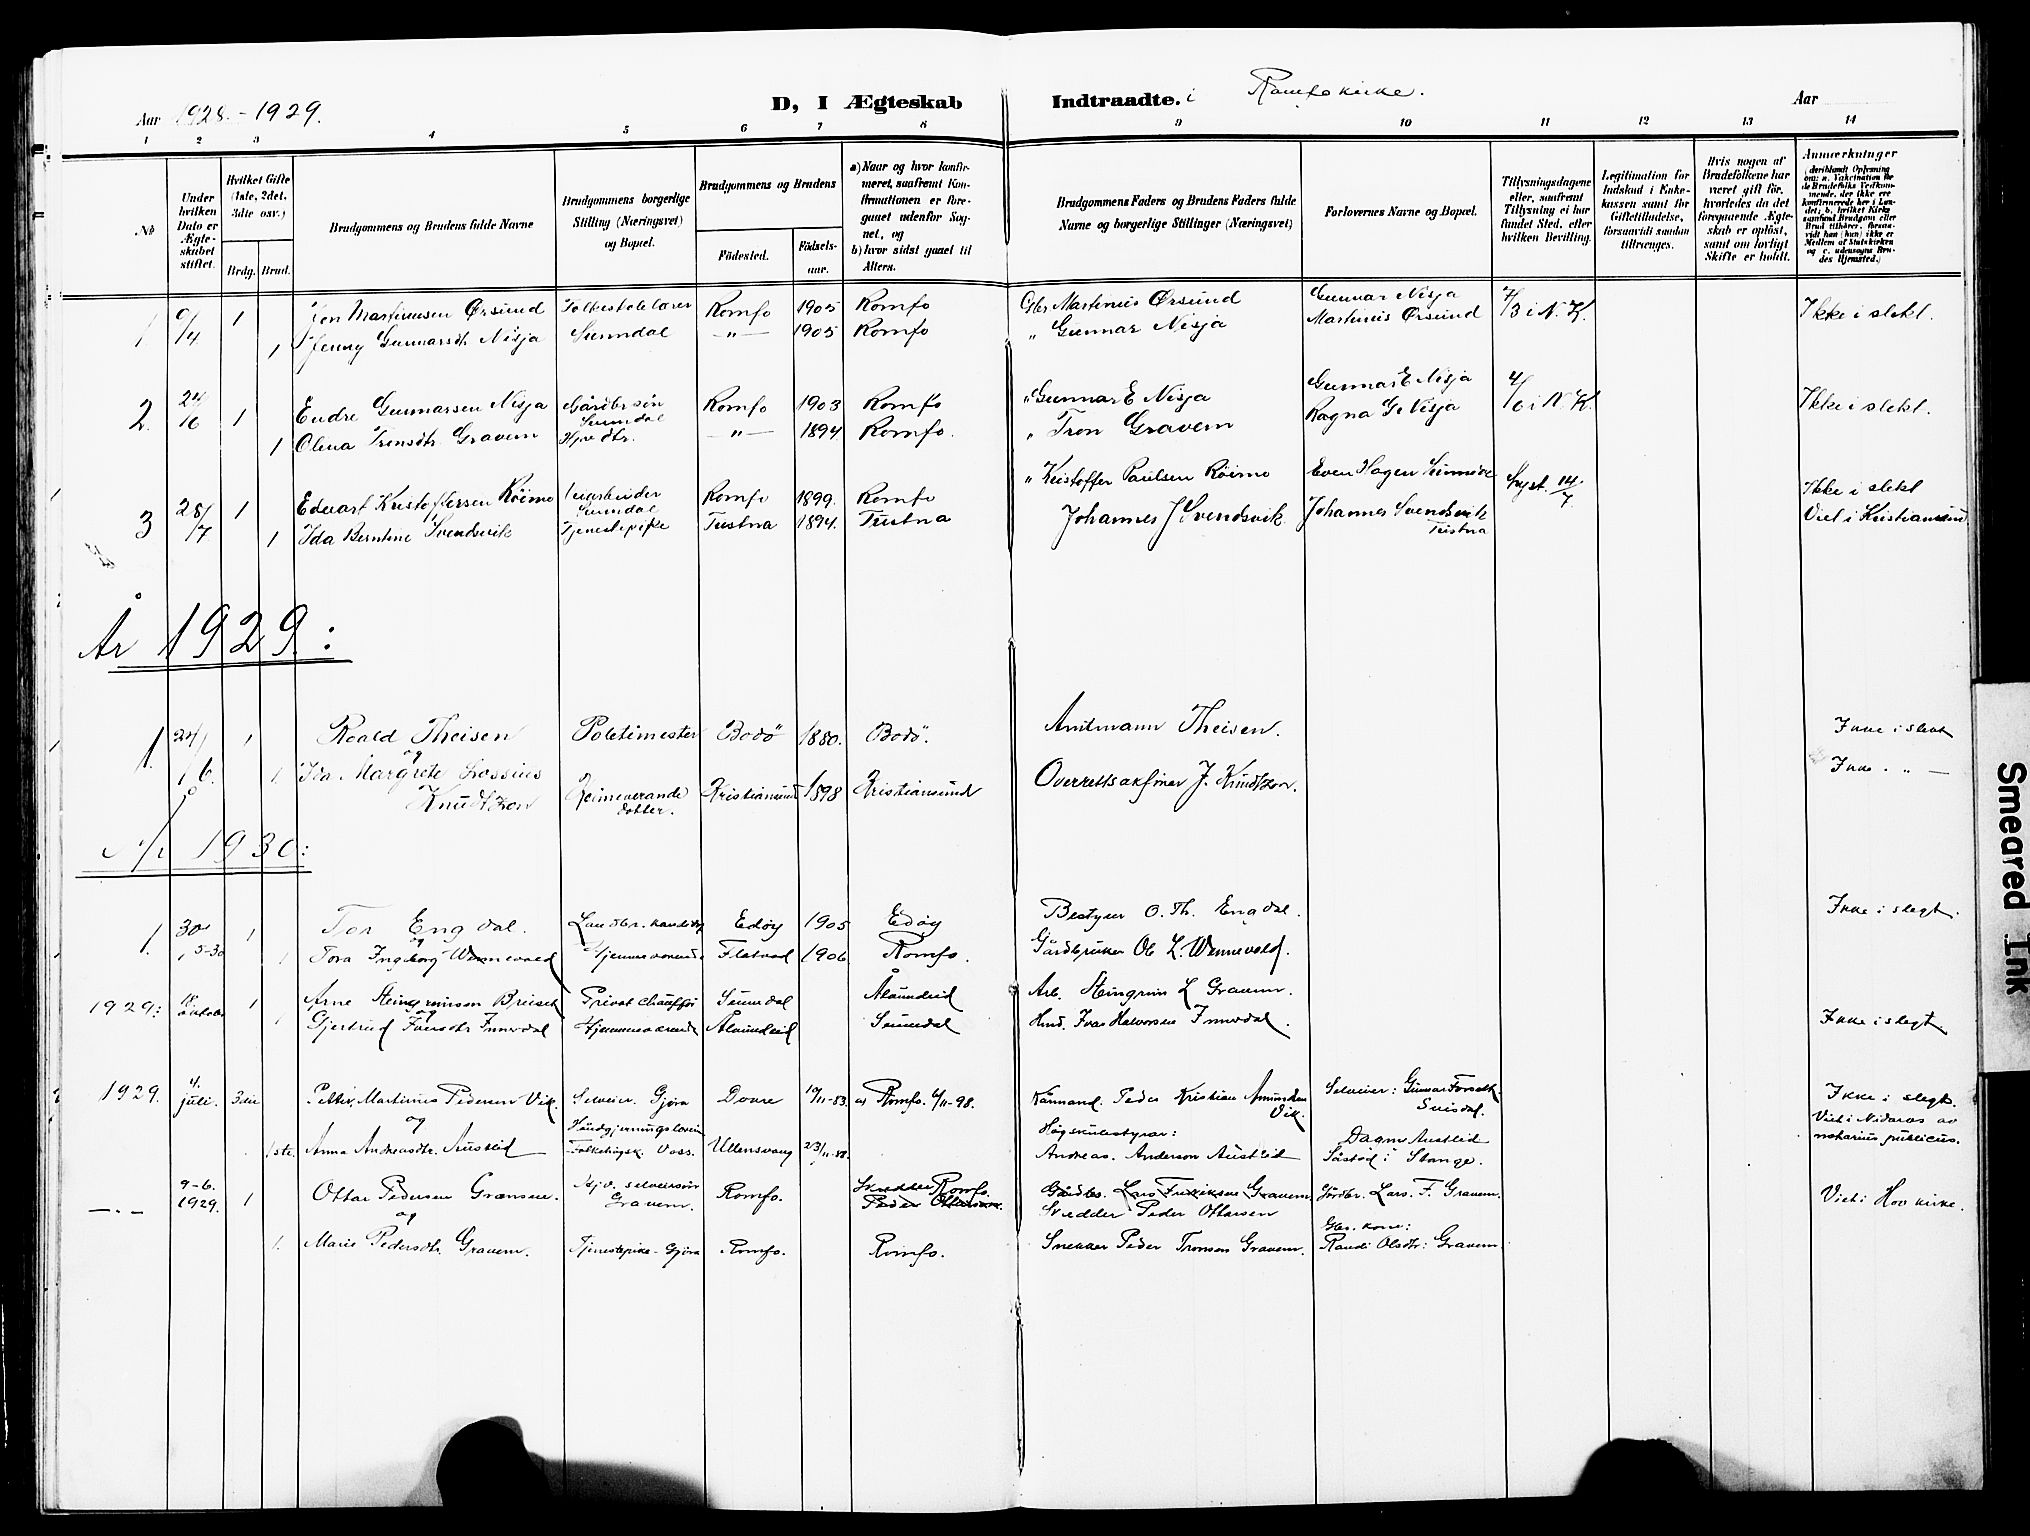 Aar 1928-1929.
D, I Ægteskab Indtraadte. i Romfo kirke.
Aar
1 2 3 4 5 6 7 8 9 10 11 12 13 14
No
Under hvilken Dato er Ægteskabet stiftet.
Hvilket Gifte (1ste, 2det, 3die osv.)
Brdg. Brud.
Brudgommens og Brudens fulde Navne
Brudgommens borgerlige Stilling (Næringsvei) og Bopæl.
Brudgommens og Brudens
Födested. Födselsaar.
a) Naar og hvor konfirmeret, saafremt Konfirmationen er foregaaet udenfor Sognet, og
b) hvor sidst gaaet til Alters.
Brudgommens Faders og Brudens Faders fulde Navne og borgerlige Stillinger (Næringsvei)
Forlovernes Navne og Bopæl.
Tillysningsdagene eller, saafremt Tillysning ei har fundet Sted, efter hvilken Bevilling.
Legitimation for Indskud i Enkekassen samt for Giftetilladelse, forsaavidt saadan tiltrænges.
Hvis nogen af Brudefolkene har været gift før, hvorledes da det foregaaende Ægteskab er oplöst, samt om lovligt Skifte er holdt.
Anmærkninger (deriblandt Oplysning om: a. Vakcination for de Brudefolks Vedkommende, der ikke ere konfirmerede her i Landet; b. hvilket Kirkesamfund Brudgom eller Brud tilhører, forsaavidt han (hun) ikke er Medlem af Statskirken og c. udensogns Brudes Hjemsted.)
1 /4 1 Jon Martinusen Ørsund Folkeskolelærer Romfo 1905 Romfo Gbr Martinus Ørsund Gunnar Nisja 7/3 i N. K. Ikke i slekt.
1 Jenny Gunnarsdtr Nisja Sunndal -"- 1905 Romfo " Gunnar Nisja Martinus Ørsund
2. 24/6 1 Endre Gunnarsen Nisja Gårdbr søn Sunndal Romfo 1903 Romfo " Gunnar E Nisja Gunnar E Nisja 4/6 i N. K. Ikke i slekt.
1 Olena Tronsdtr. Gravem Hjv dtr. -"- 1894 Romfo. " Tron Gravem Ragna G. Nisja
3 28/7 1 Edvart Kristoffersen Röimo Sunndal Romfo 1899. Romfo " Kristoffer Paulsen Röimo Even Hagen Sunndal lyst 14/7 Ikke i slekt
1 Ida Berntine Svendsvik Tjenestepike Tustna 1894. Tustna Johannes J Svendsvik Johannes Svendsvik Tustna Viet i Kristiansund
År 1929:
1. 24/6 1 Roald Theisen Politimester Bodö 1880. Bodö. Amtmann Theisen. Ikke i slekt
og
1 Ida Margrete Lossius Knudtzon Heimeverande dotter. Kristiansund 1898 Kristiansund Overrettssakfører J. Knudtzon. Ikke . " -
År 1930:
1. 30/5-30 1 Tor Engdal. Landbr. kandidat Edöy 1905 Edöy Bestyrer O. Th. Engdal. Ikke i slegt.
og
1 Tora Ingeborg Wennevold Hjemmeværende Flatvad 1906 Romfo. Gårdbruker Ol. L. Wennevold.
1929: oktober 1 Arne Steingrimsen Breiset Privat chauffør Sunndal Ålvundeid Arb. Steingrim L Gravem.
og
1 Gjertrud Ivarsdtr Innerdal Hjemmeværende Ålvundeid Sunndal Hmd. Ivar Halvorsen Innerdal. Ikke i slegt.
1929. 4. juli. 3die Petter Martinus Pedersen Vik. Selveier. Gjøra Dovre 19/11-83. a) Romfo. 6/11-98. Kårmand. Peder Kristian Amundsen Vik. Selveier: Gunnar Forseth. Ikke i slegt.
og
1ste. Anna Andreasdtr. Austlid Håndgjerningslærerin Folkehögsk. Voss. Ullensvang 23/11-88. Högskulestyrar: Andreas. Anderson Austlid Dagny Austlid Såstad i Stange. Viet i Nidaros av notarius publicus.
-.- 9-6. 1929. 1 Ottar Pedersen Grensen. selveiersøn Gravem. Romfo. Snedker Romfo. Peder Ottarsen. Gårdbr. Lars Fredriksen Gravem. Snedder Peder Ottarsen Gårdbr. Lars. F. Gravem. Viet i Hov kirke.
og
1. Marie Pedersdtr. Gravem. Tjenestepike - Gjøra Romfo. Romfo. Snekker Peder Tronsen Gravem. Gbr. kone: Randi Olsdtr: Gravem.
Smeared Ink